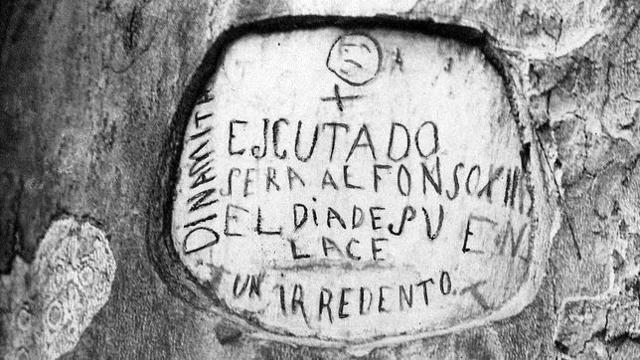 EJCUTADO
SERA ALFONSO XIII
EL DiA DE SU EN
LACE
UN IRREDENTO.
DINAMITA